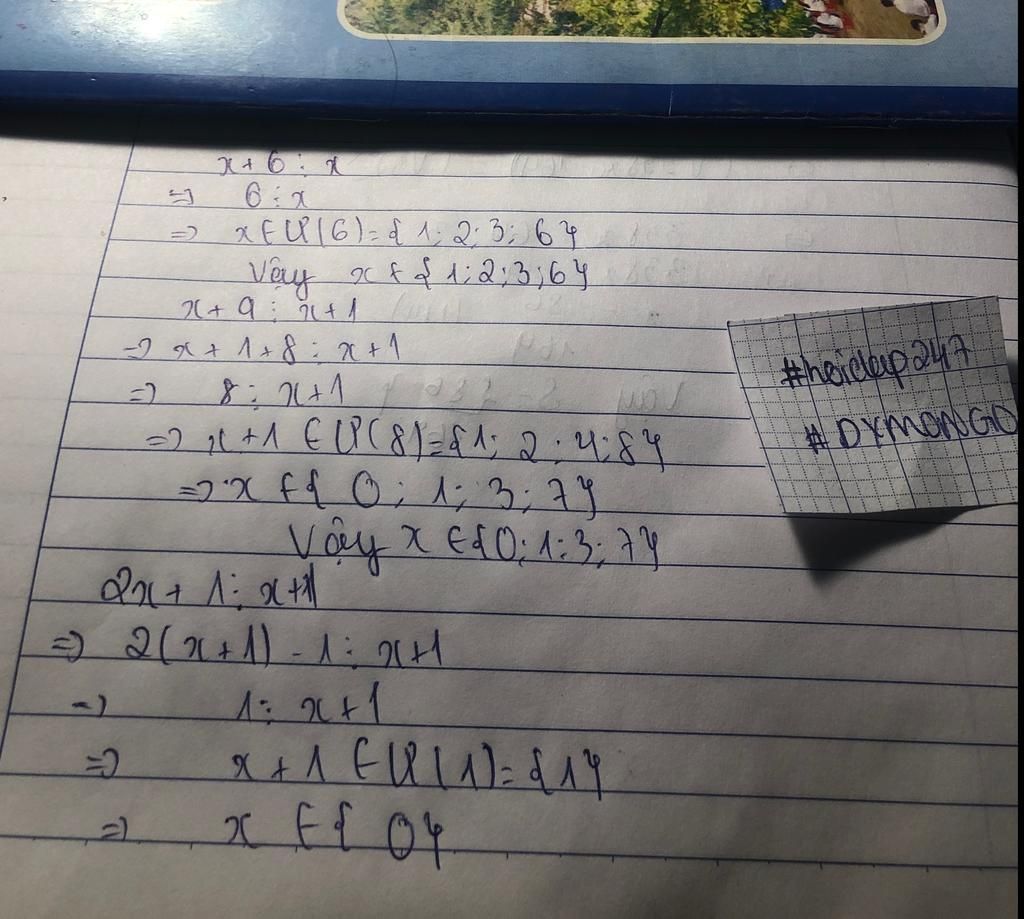 x + 6 ⋮ x
=> 6 ⋮ x
=> x ∈ Ư(6) = { 1; 2; 3; 6}
Vậy x ∈ { 1; 2; 3; 6}
x + 9 ⋮ x + 1
=> x + 1 + 8 ⋮ x + 1
=> 8 ⋮ x + 1
=> x + 1 ∈ Ư(8) = {1; 2; 4; 8}
=> x ∈ { 0; 1; 3; 7}
Vậy x ∈ {0; 1; 3; 7}
2x + 1 ⋮ x + 1
=> 2(x + 1) - 1 ⋮ x + 1
=> 1 ⋮ x + 1
=> x + 1 ∈ Ư(1) = {1}
=> x ∈ { 0}
#hoidap247
#DYMONGD